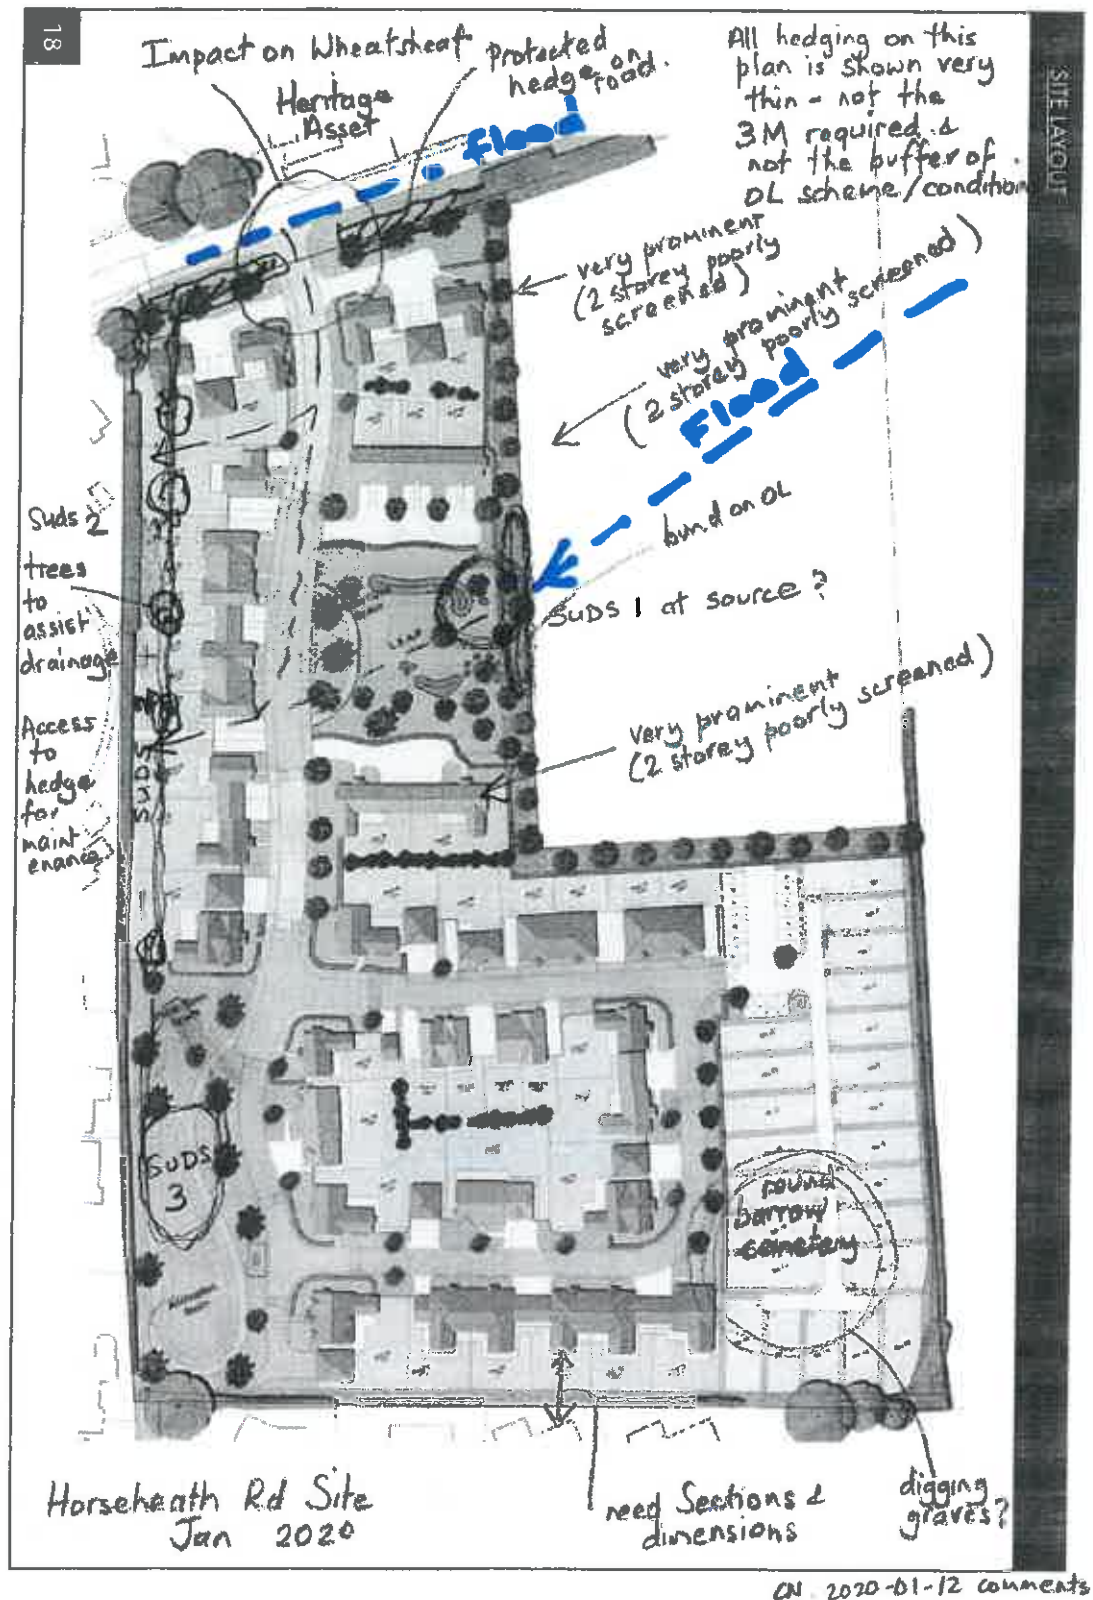 18
SITE LAYOUT
Impact on Wheatsheaf
Heritage
Asset
Protected
hedge on
road.
Flood
All hedging on this
plan is shown very
thin - not the
3M required &
not the buffer of
OL scheme/condition
very prominent
(2 storey poorly
screened)
very prominent
(2 storey poorly screened)
Flood
bund on OL
SUDS 1 at source?
very prominent
(2 storey poorly screened)
Suds 2
trees
to
assist
drainage
Access
to
hedge
for
maint
enance
SUDS 2
LEAP
SUDS
3
round
barrow
cemetery
digging
graves?
need Sections &
dimensions
Horseheath Rd Site
Jan 2020
CN. 2020-01-12 comments